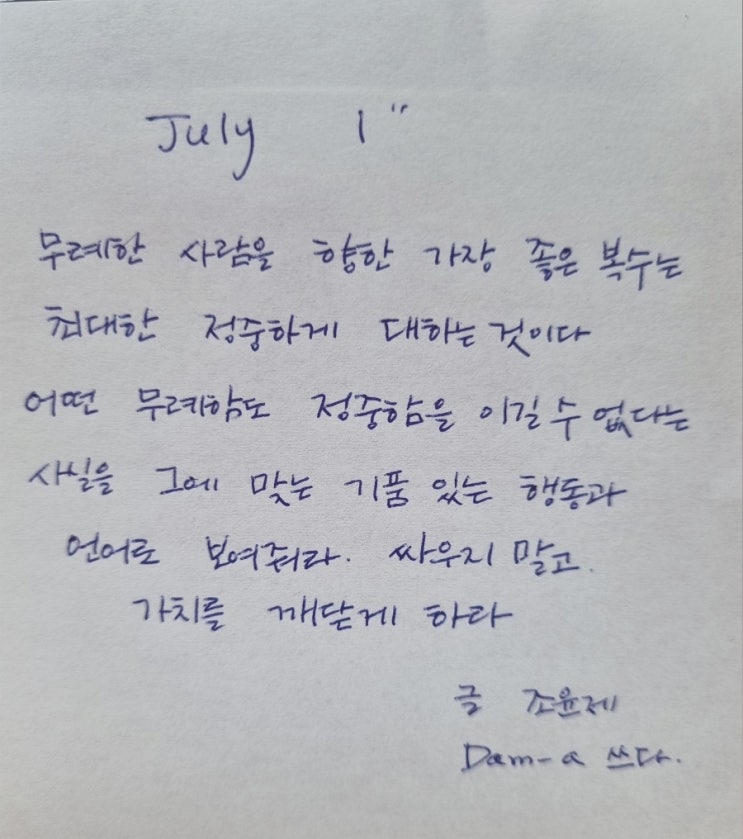 July 1"
무례한 사람을 향한 가장 좋은 복수는
최대한 정중하게 대하는 것이다
어떤 무례함도 정중함을 이길 수 없다는
사실을 그에 맞는 기품 있는 행동과
언어로 보여줘라. 싸우지 말고.
가치를 깨닫게 하라
글 조윤제
Dam-a 쓰다.